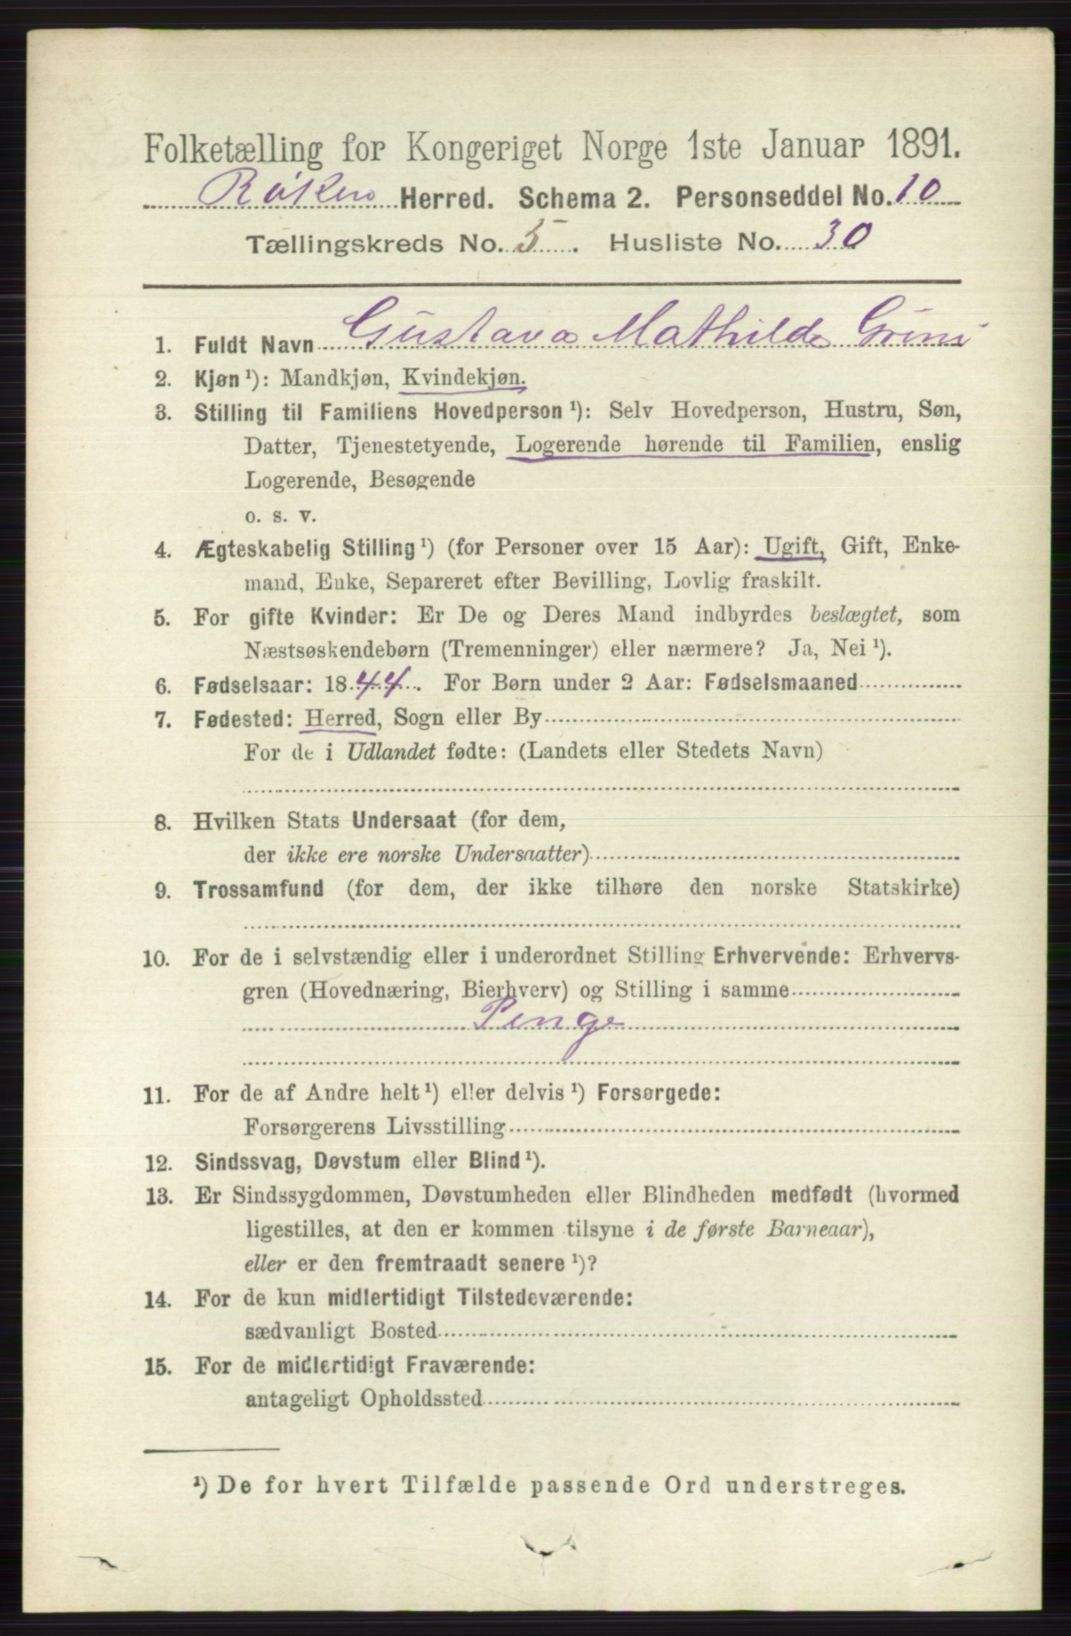 Folketælling for Kongeriget Norge 1ste Januar 1891.
Røken Herred. Schema 2. Personseddel No. 10
Tællingskreds No. 5. Husliste No. 30
1. Fuldt Navn Gustava Mathilde Grini
2. Kjøn ¹): Mandkjøn, Kvindekjøn.
3. Stilling til Familiens Hovedperson ¹): Selv Hovedperson, Hustru, Søn,
Datter, Tjenestetyende, Logerende hørende til Familien, enslig
Logerende, Besøgende
o. s. v.
4. Ægteskabelig Stilling ¹) (for Personer over 15 Aar): Ugift, Gift, Enke-
mand, Enke, Separeret efter Bevilling, Lovlig fraskilt.
5. For gifte Kvinder: Er De og Deres Mand indbyrdes beslægtet, som
Næstsøskendebørn (Tremenninger) eller nærmere? Ja, Nei ¹).
6. Fødselsaar: 1844. For Børn under 2 Aar: Fødselsmaaned
7. Fødested: Herred, Sogn eller By
For de i Udlandet fødte: (Landets eller Stedets Navn)
8. Hvilken Stats Undersaat (for dem,
der ikke ere norske Undersaatter)
9. Trossamfund (for dem, der ikke tilhøre den norske Statskirke)
10. For de i selvstændig eller i underordnet Stilling Erhvervende: Erhvervs-
gren (Hovednæring, Bierhverv) og Stilling i samme
Penge
11. For de af Andre helt ¹) eller delvis ¹) Forsørgede:
Forsørgerens Livsstilling
12. Sindssvag, Døvstum eller Blind ¹).
13. Er Sindssygdommen, Døvstumheden eller Blindheden medfødt (hvormed
ligestilles, at den er kommen tilsyne i de første Barneaar),
eller er den fremtraadt senere ¹)?
14. For de kun midlertidigt Tilstedeværende:
sædvanligt Bosted
15. For de midlertidigt Fraværende:
antageligt Opholdssted
¹) De for hvert Tilfælde passende Ord understreges.